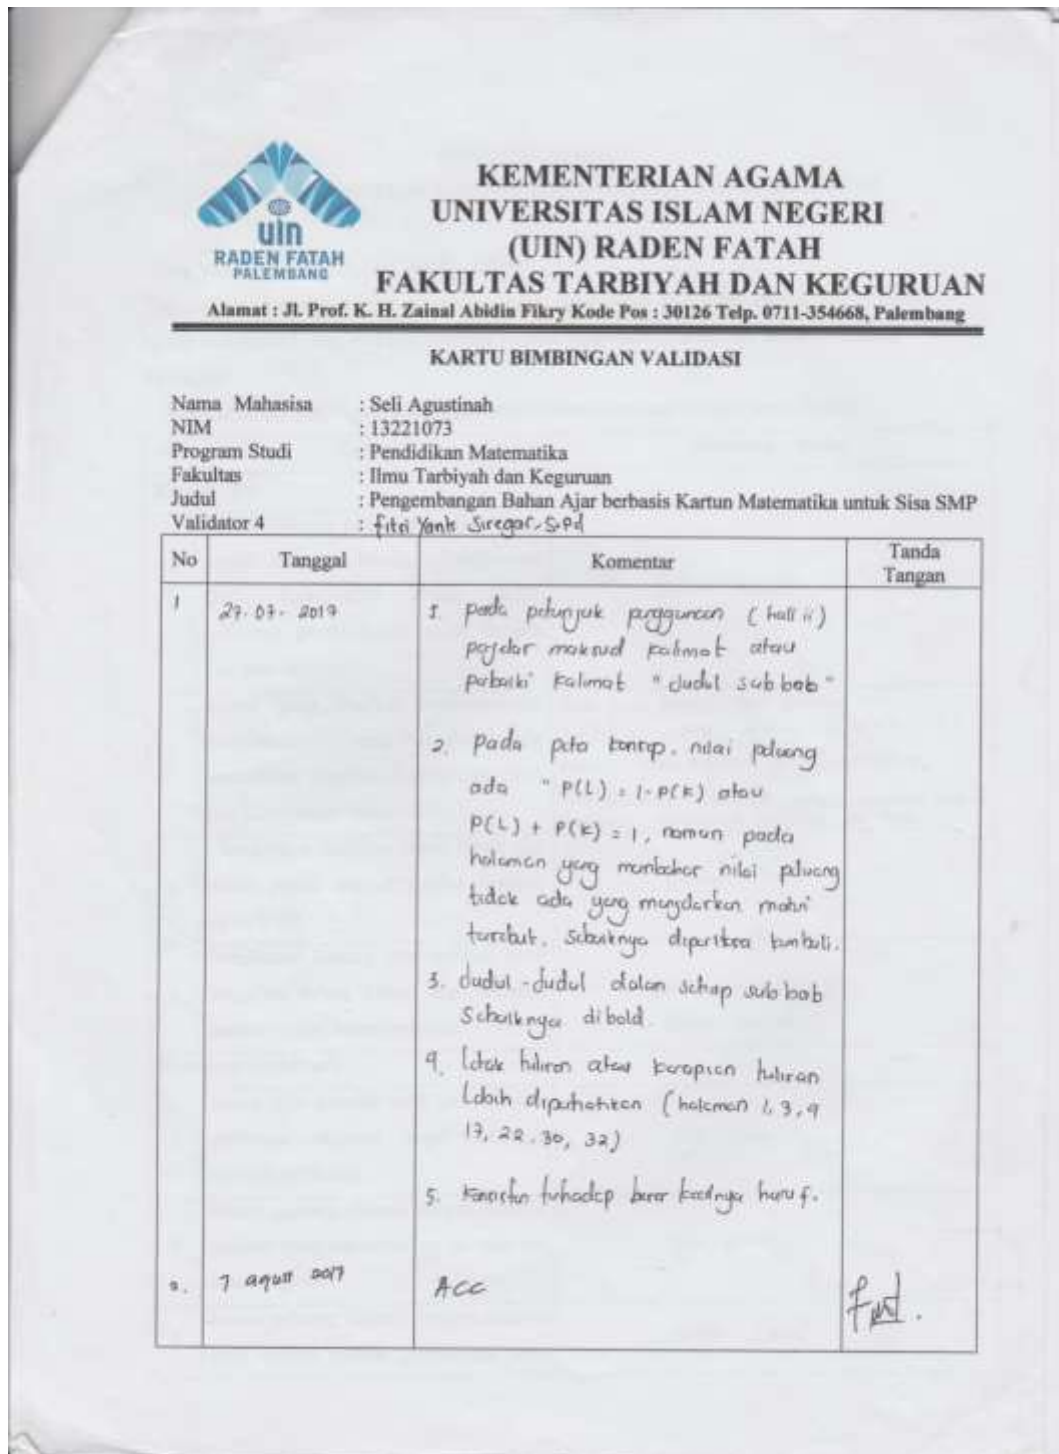 uin
RADEN FATAH
PALEMBANG
KEMENTERIAN AGAMA
UNIVERSITAS ISLAM NEGERI
(UIN) RADEN FATAH
FAKULTAS TARBIYAH DAN KEGURUAN
Alamat : Jl. Prof. K. H. Zainal Abidin Fikry Kode Pos : 30126 Telp. 0711-354668, Palembang
KARTU BIMBINGAN VALIDASI
Nama Mahasisa : Seli Agustinah
NIM : 13221073
Program Studi : Pendidikan Matematika
Fakultas : Ilmu Tarbiyah dan Keguruan
Judul : Pengembangan Bahan Ajar berbasis Kartun Matematika untuk Sisa SMP
Validator 4 : Fitri Yanti Siregar, S.Pd
No Tanggal Komentar Tanda Tangan
1 27-07-2017 1. pada petunjuk penggunaan (hal ii)
maksud kalimat atau
perbaiki kalimat "Judul sub bab"
2. Pada peta konsep, nilai peluang
ada "P(L) = 1-P(K) atau
P(L) + P(K) = 1, namun pada
halaman yang membahas nilai peluang
tidak ada yang materi
tersebut. Sebaiknya diperiksa kembali.
3. Judul-Judul dalam setiap sub bab
Sebaiknya dibold.
4. Letak tulisan atau kerapian tulisan
Lebih diperhatikan (halaman 1, 3, 9
17, 22, 30, 32)
5. Konsisten terhadap besar kecilnya huruf.
2. 7 agust 2017 ACC